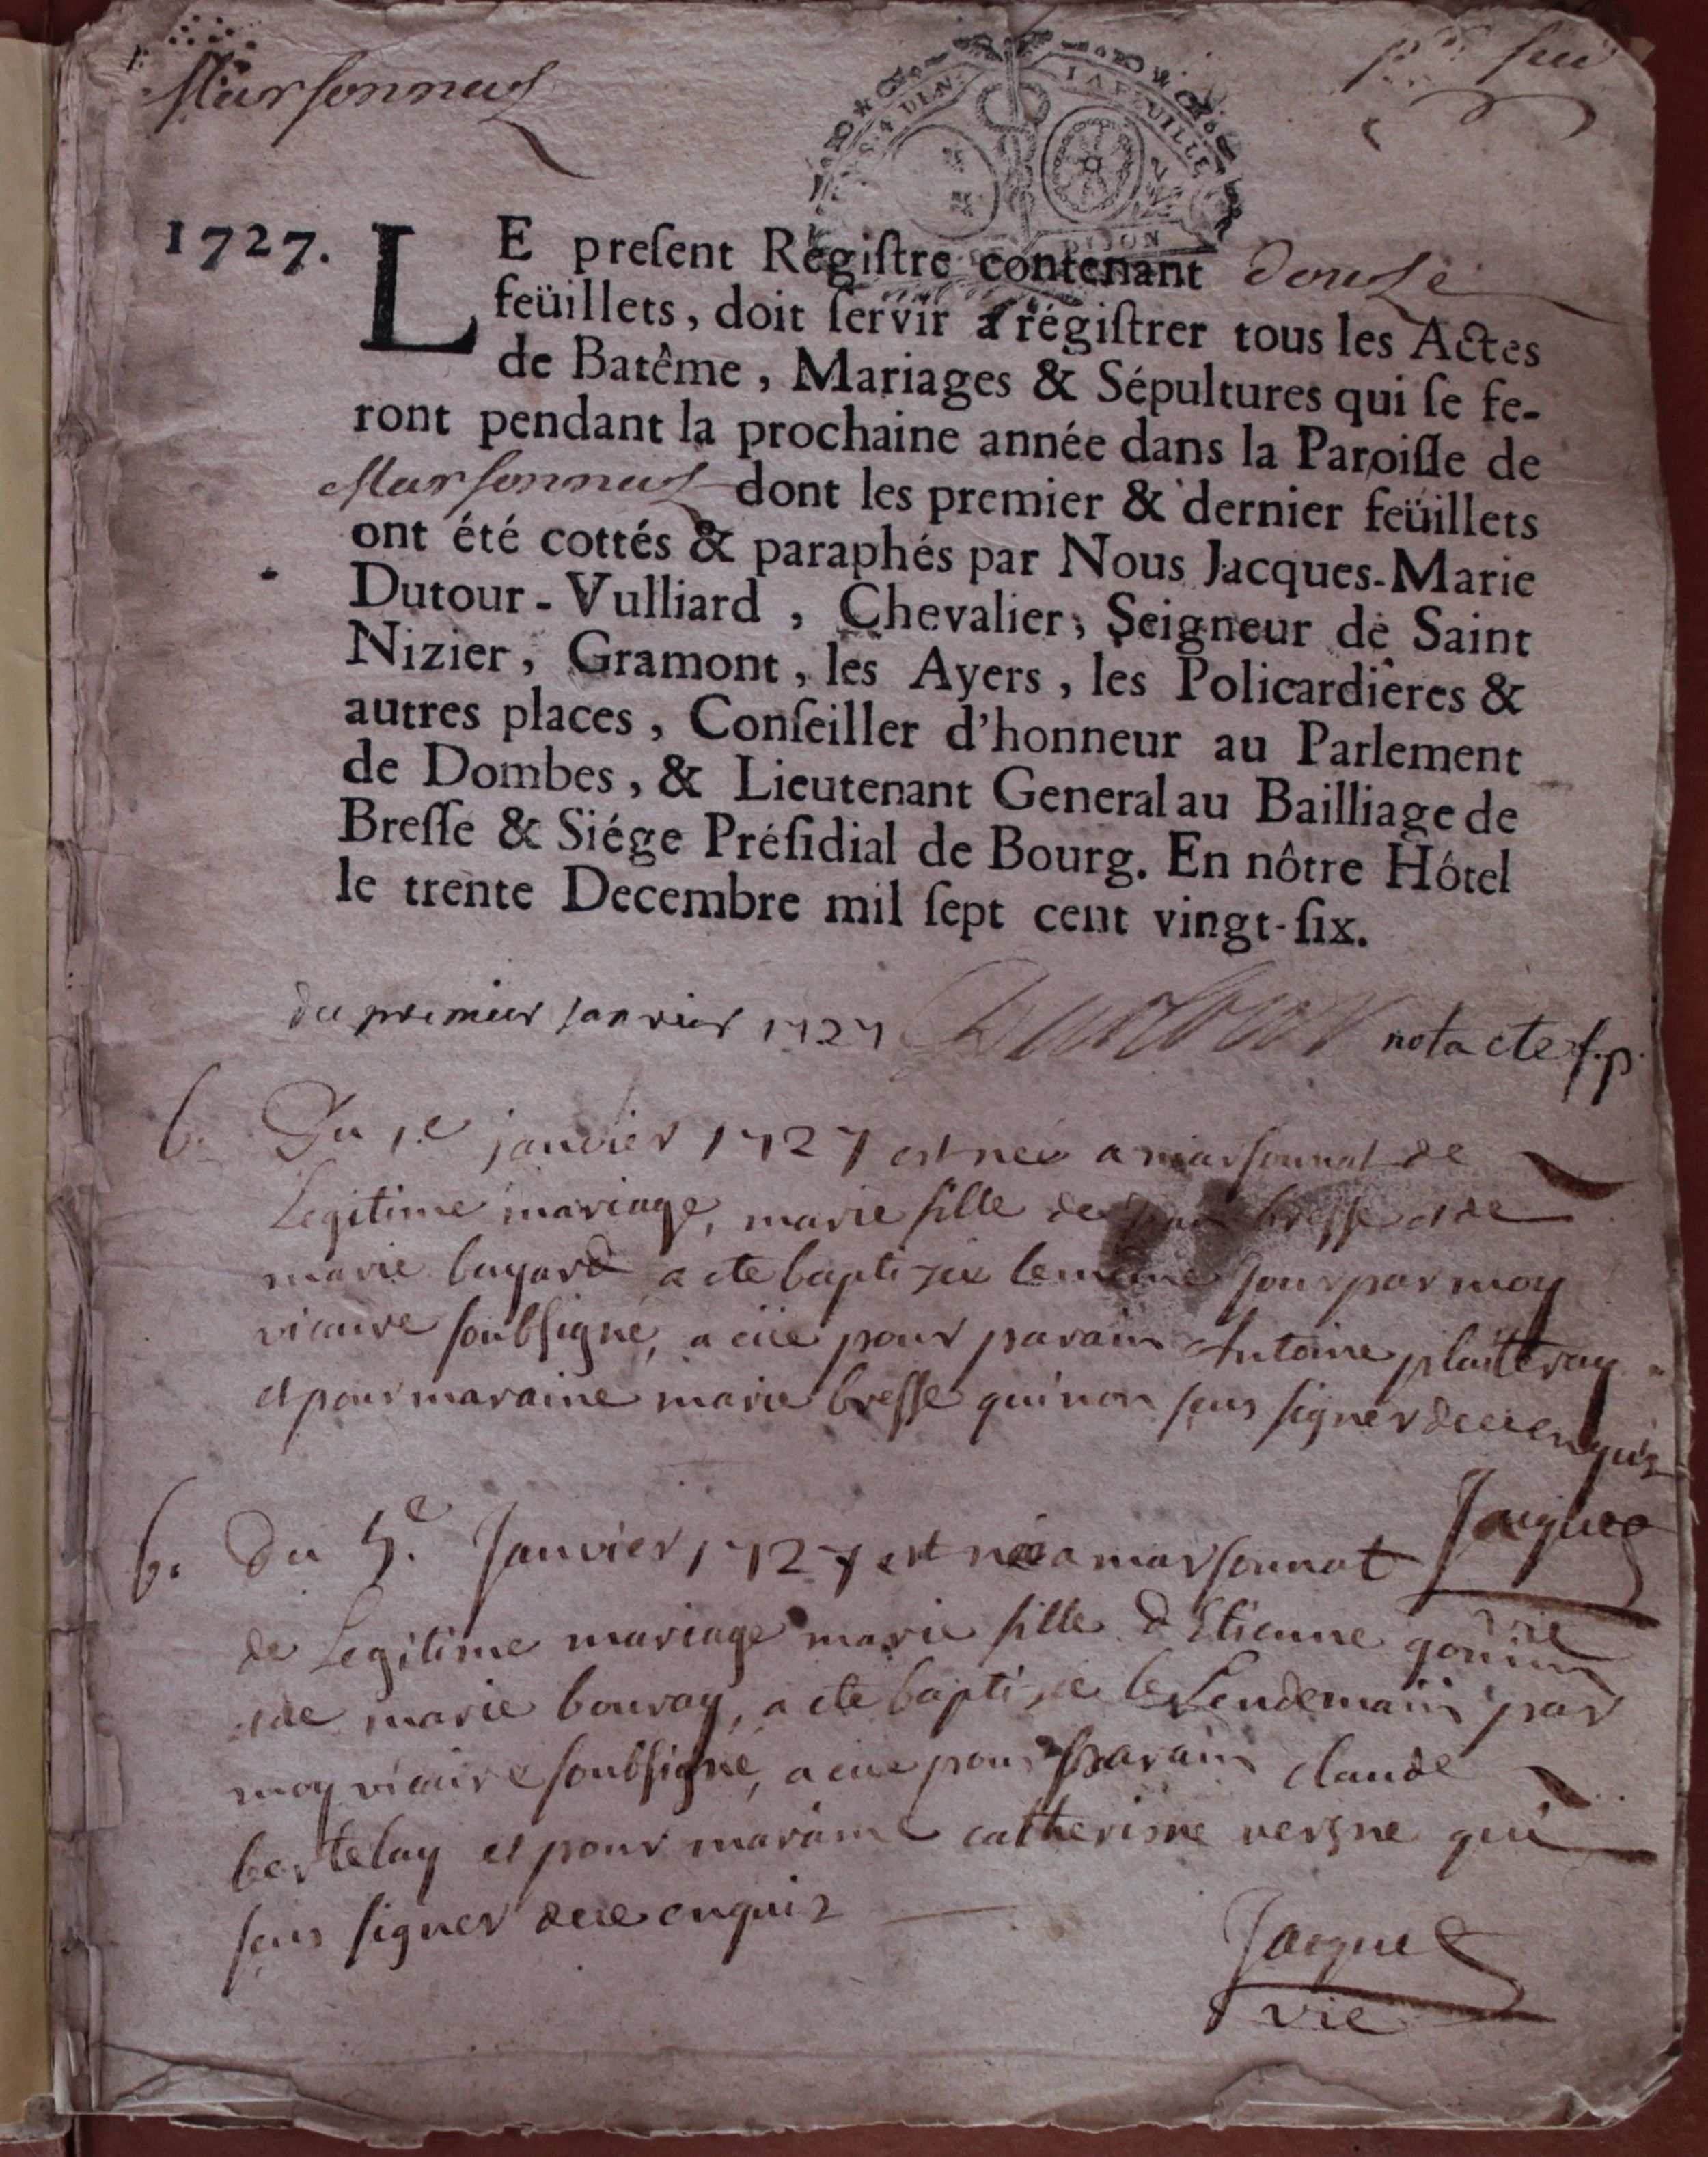 Marsonnas
feu
4 DEN. LA FEUILLE
DIJON
1727. LE preſent Régiſtre contenant douze
feüillets, doit ſervir à régiſtrer tous les Actes
de Batême, Mariages & Sépultures qui ſe fe-
ront pendant la prochaine année dans la Paroiſſe de
Marsonnas dont les premier & dernier feüillets
ont été cottés & paraphés par Nous Jacques-Marie
Dutour-Vulliard, Chevalier, Seigneur de Saint
Nizier, Gramont, les Ayers, les Policardiéres &
autres places, Conſeiller d'honneur au Parlement
de Dombes, & Lieutenant General au Bailliage de
Breſſe & Siége Préſidial de Bourg. En nôtre Hôtel
le trente Decembre mil ſept cent vingt-ſix.
du premier janvier 1727 nota cte f.p.
b. Du 1.e janvier 1727 est neé a marsonnat de
Legitime mariage, marie fille de bresse et de
marie bayard a ete baptiseé le meme jour par moy
vicaire soubsigné, a eüe pour parain Antoine plaiteray
et pour maraine marie bresse qui non sceus signer de ce enquis
Jacques
vie
b. Du 5.e Janvier 1727 est neé a marsonnat
de Legitime mariage marie fille d'Etienne
et de marie bouray, a ete baptiseé le Lendemain par
moy vicaire soubsigné, a eüe pour parain claude
bertelay et pour maraine catherine vergne qui
sceus signer de ce enquis
Jacques
vie